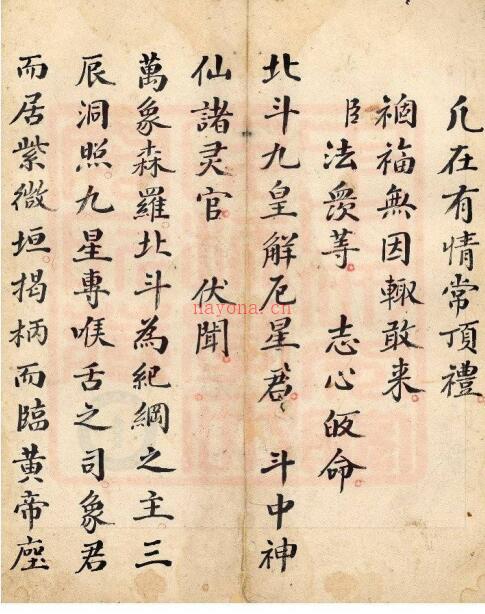 凡在有情常頂禮
禍福無因輙敢来
臣法衆等 志心皈命
北斗九皇解厄星君 斗中神
仙諸灵官 伏聞
萬象森羅北斗為紀綱之主三
辰洞照九星專喉舌之司象君
而居紫微垣揭柄而臨黄帝座
nayona.cn